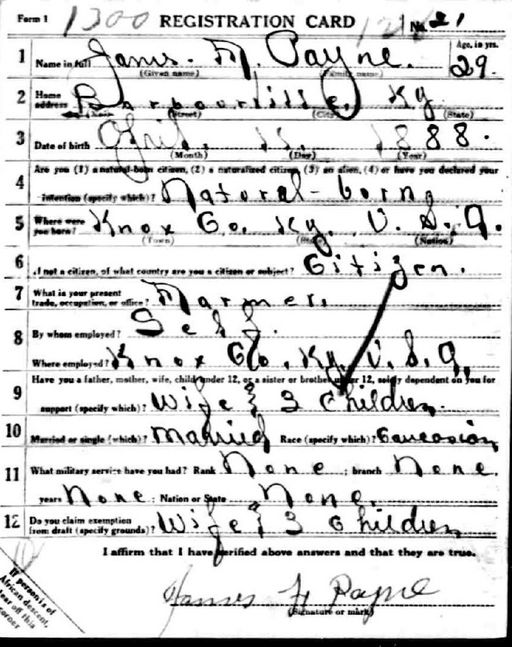 Form 1 1300 REGISTRATION CARD No. 21
1 Name in full James. M. Payne. Age, in yrs. 29.
(Given name) (Family name)
2 Home address Barbourville, Ky
(Street) (City) (State)
3 Date of birth April. 1888.
(Month) (Day) (Year)
4 Are you (1) a natural-born citizen, (2) a naturalized citizen, (3) an alien, (4) or have you declared your
intention (specify which)? Natural-born
5 Where were you born? Knox Co. Ky. U. S. A.
(Town) (State) (Nation)
6 If not a citizen, of what country are you a citizen or subject? Citizen.
7 What is your present trade, occupation, or office? Farmer.
8 By whom employed? Self.
Where employed? Knox Co. Ky. U. S. A,
9 Have you a father, mother, wife, child under 12, or a sister or brother under 12, solely dependent on you for
support (specify which)? Wife & 3 Children.
10 Married or single (which)? Married Race (specify which)? Caucasian
11 What military service have you had? Rank None ; branch None.
years None ; Nation or State None.
12 Do you claim exemption from draft (specify grounds)? Wife & 3 Children
I affirm that I have verified above answers and that they are true.
If person is of
African descent,
tear off this
corner
James Payne
(Signature or mark)